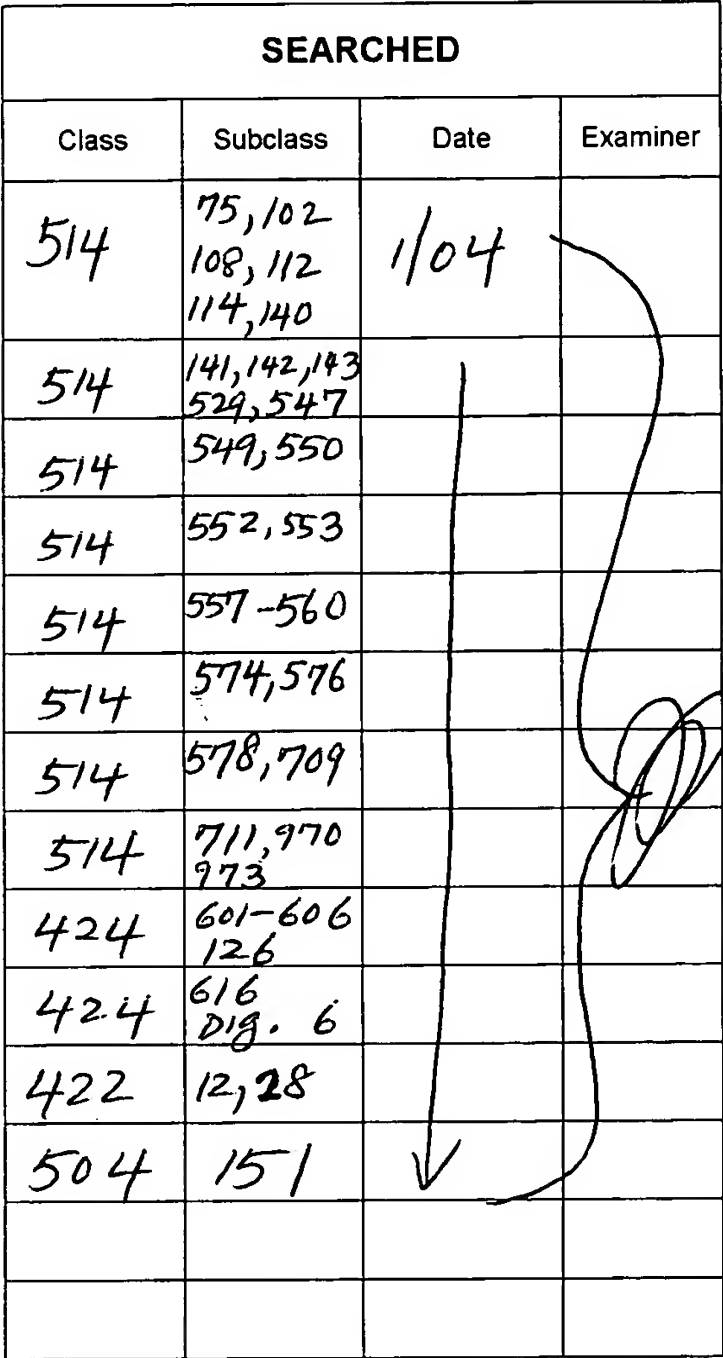 SEARCHED
Class Subclass Date Examiner
514 75, 102 1/04
108, 112
114, 140
514 141, 142, 143
529, 547
514 549, 550
514 552, 553
514 557-560
514 574, 576
514 578, 709
514 711, 970
973
424 601-606
126
424 616
Dig. 6
422 12, 28
504 151